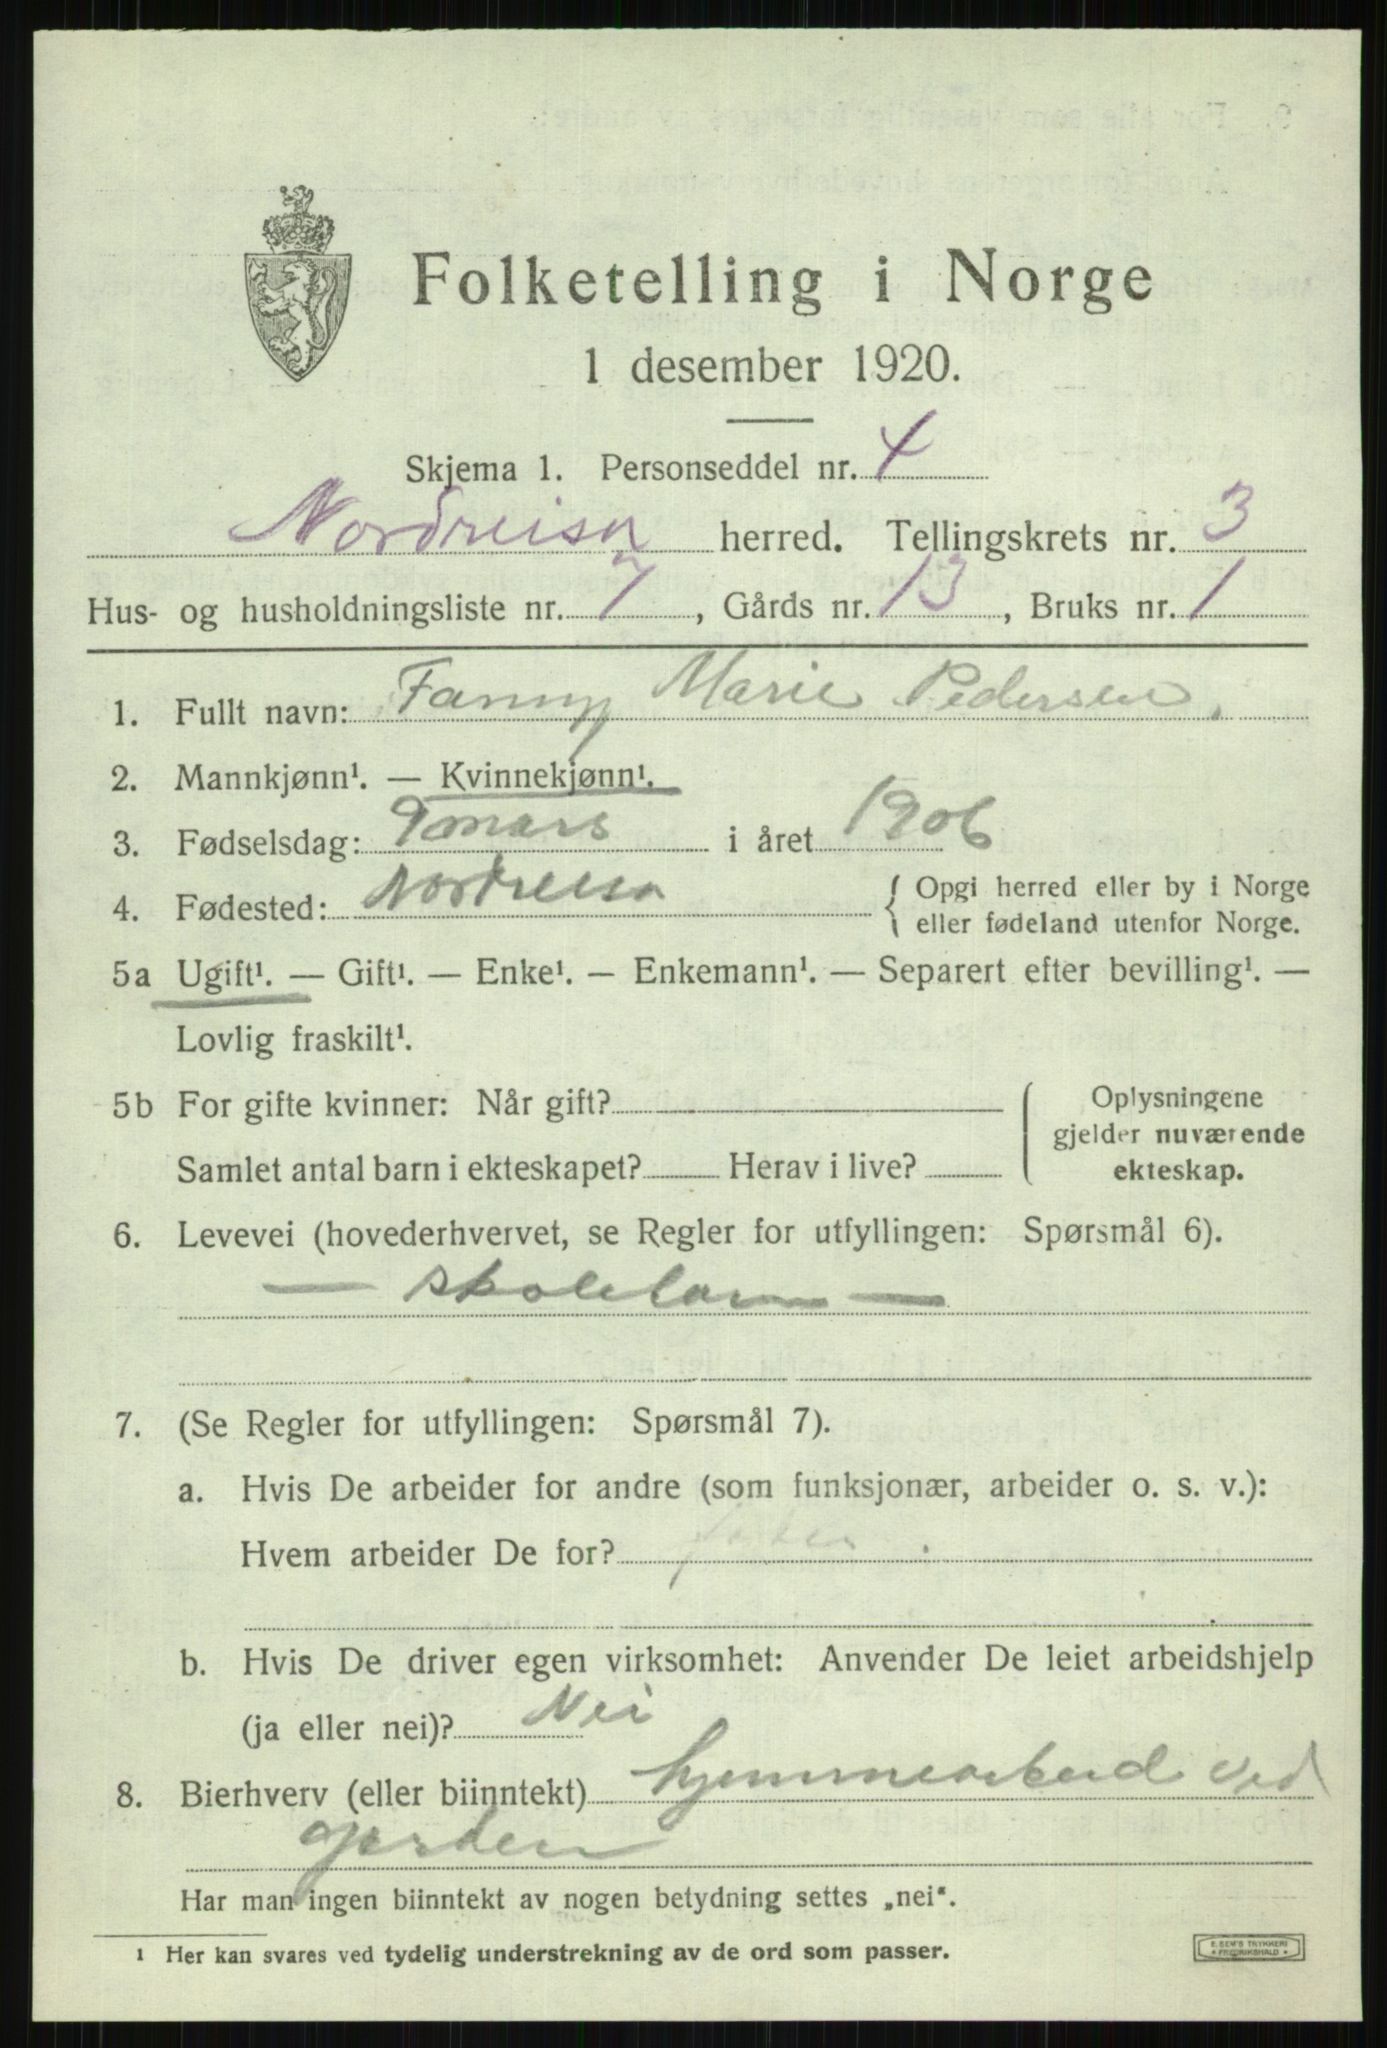 Folketelling i Norge
1 desember 1920.
Skjema 1. Personseddel nr. 4
Nordreisa herred. Tellingskrets nr. 3
Hus- og husholdningsliste nr. 7, Gårds nr. 13, Bruks nr. 1
1. Fullt navn: Fanny Marie Pedersen,
2. Mannkjønn¹. — Kvinnekjønn¹.
3. Fødselsdag: 9 mars i året 1906
4. Fødested: Nordreisa { Opgi herred eller by i Norge
eller fødeland utenfor Norge.
5a Ugift¹. — Gift¹. — Enke¹. — Enkemann¹. — Separert efter bevilling¹. —
Lovlig fraskilt¹.
5b For gifte kvinner: Når gift?
Samlet antal barn i ekteskapet? Herav i live?
Oplysningene
gjelder nuværende
ekteskap.
6. Levevei (hovederhvervet, se Regler for utfyllingen: Spørsmål 6).
— skolebarn —
7. (Se Regler for utfyllingen: Spørsmål 7).
a. Hvis De arbeider for andre (som funksjonær, arbeider o. s. v.):
Hvem arbeider De for?
b. Hvis De driver egen virksomhet: Anvender De leiet arbeidshjelp
(ja eller nei)? Nei
8. Bierhverv (eller biinntekt) hjemmearbeid ved
gården
Har man ingen biinntekt av nogen betydning settes „nei“.
¹ Her kan svares ved tydelig understrekning av de ord som passer.
E. SEM'S TRYKKERI
FREDRIKSHALD